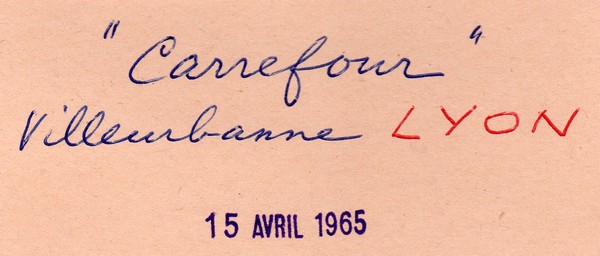 "Carrefour"
Villeurbanne LYON
15 AVRIL 1965